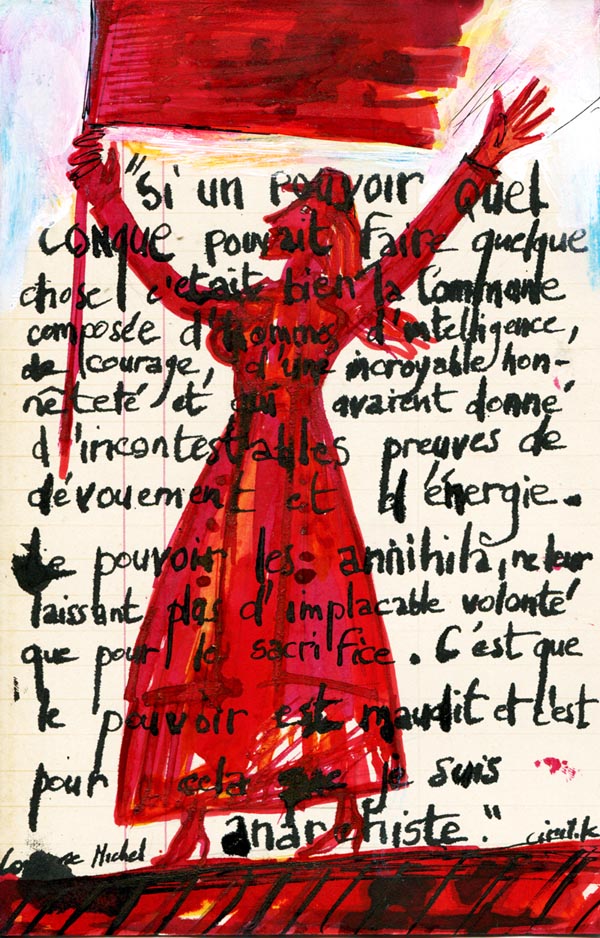 "Si un pouvoir quel
conque pouvait faire quelque
chose c'etait bien la Commune
composée d'hommes d'intelligence,
de courage, d'une incroyable hon-
nêteté et qui avaient donné
d'incontestables preuves de
dévouement et d'énergie.
Le pouvoir les annihila, ne leur
laissant plus d'implacable volonté
que pour le sacrifice. C'est que
le pouvoir est maudit et c'est
pour cela que je suis
anarchiste."
Louise Michel